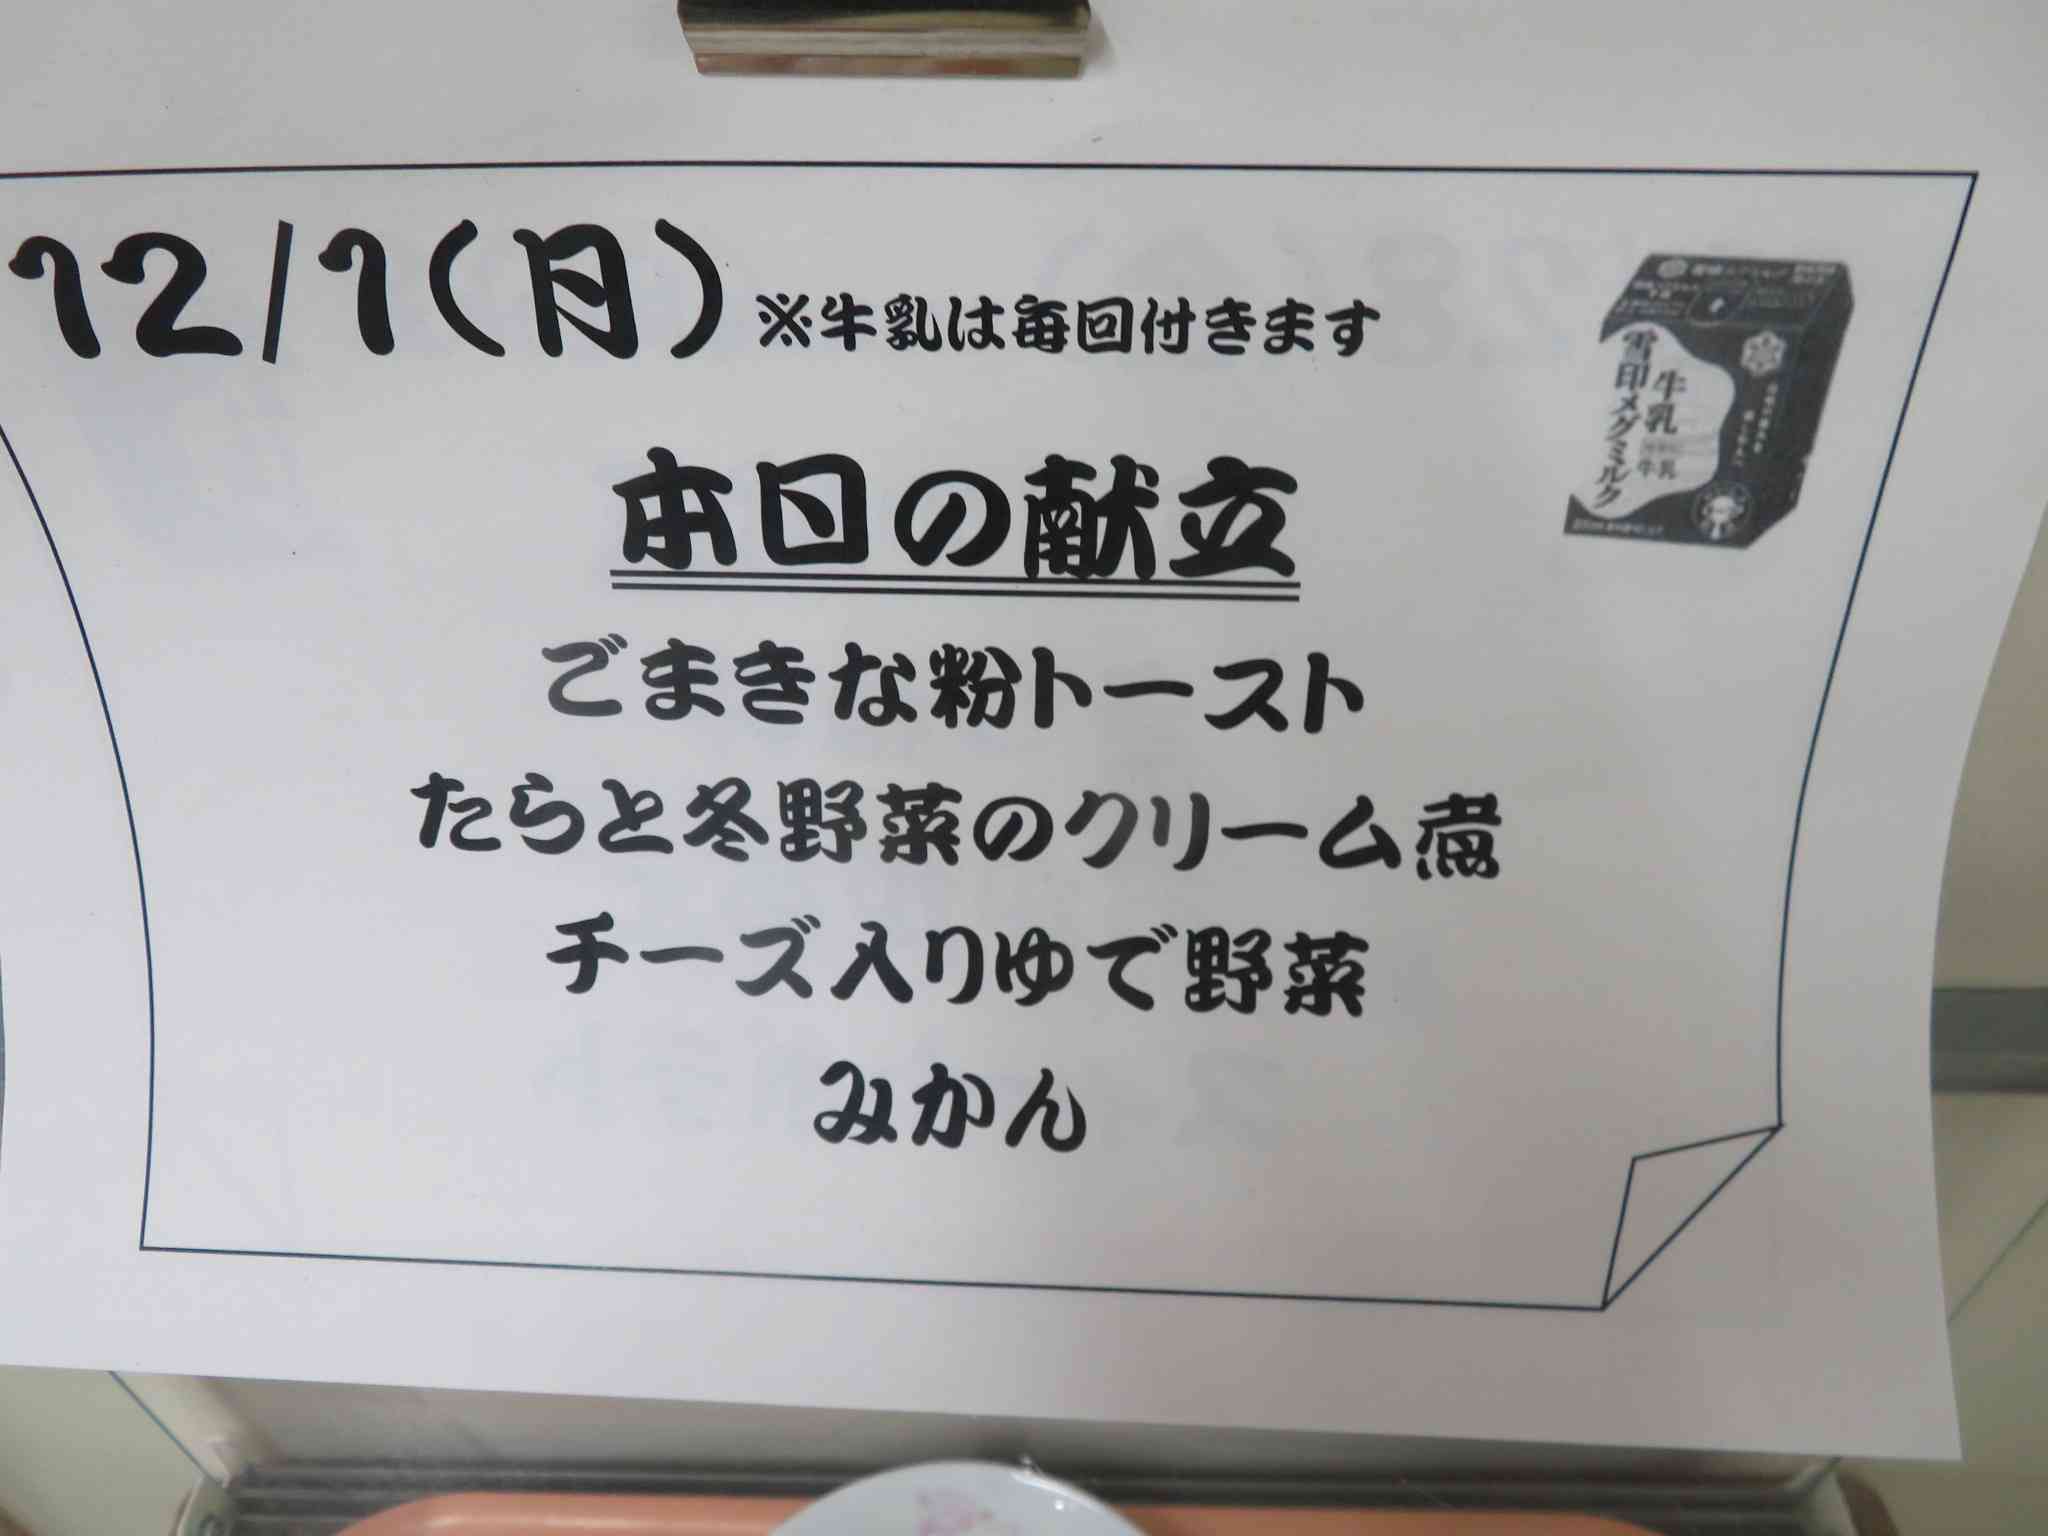 12/1(月) ※牛乳は毎回付きます
本日の献立
ごまきな粉トースト
たらと冬野菜のクリーム煮
チーズ入りゆで野菜
みかん
牛乳
雪印メグミルク
牛乳